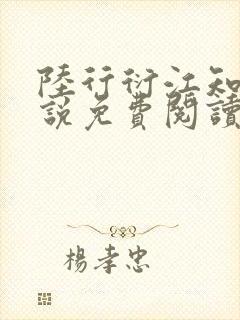 陸行衍江知
說免費閱讀
楊孝忠